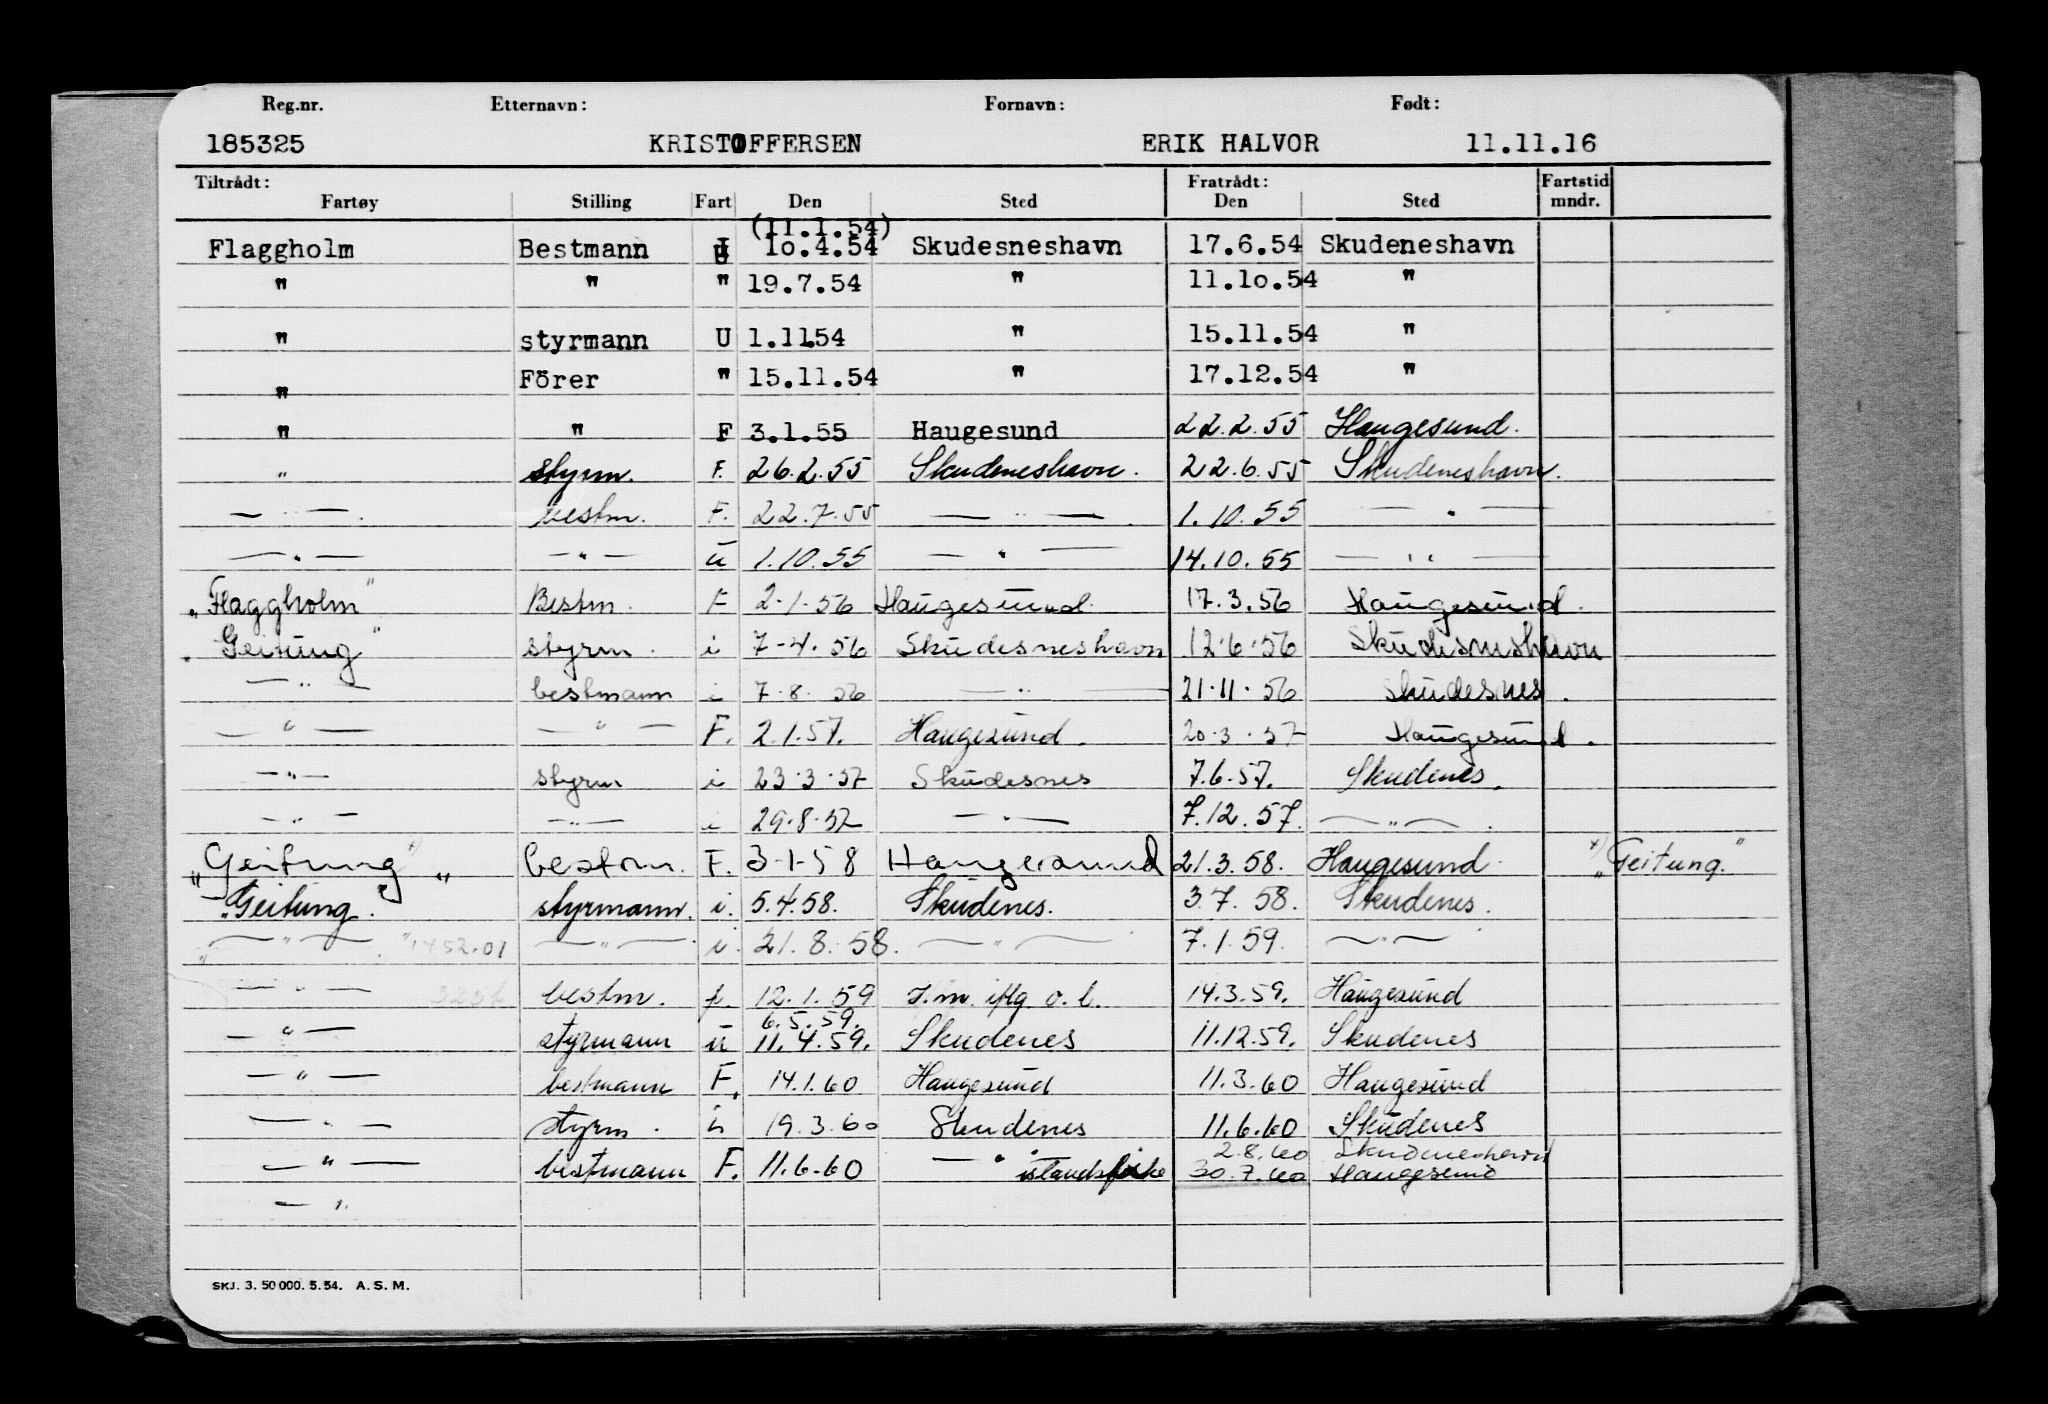 Reg.nr. Etternavn: Fornavn: Født:
185325 KRISTOFFERSEN ERIK HALVOR 11.11.16
Tiltrådt: Fratrådt: Fartstid
Fartøy Stilling Fart Den Sted Den Sted mndr.
(11.1.54)
Flaggholm Bestmann 10.4.54 Skudesneshavn 17.6.54 Skudeneshavn
" " " 19.7.54 " 11.10.54 "
" styrmann U 1.11.54 " 15.11.54 "
" Förer " 15.11.54 " 17.12.54 "
" " F 3.1.55 Haugesund 22.2.55 Haugesund.
" styrm. F. 26.2.55 Skudeneshavn. 22.6.55 Skudeneshavn.
— " — bestm. F. 22.7.55 — " — 1.10.55 — " —
— " — — " — u 1.10.55 — " — 14.10.55 — " —
"Flaggholm" Bestm. F 2.1.56 Haugesund. 17.3.56 Haugesund.
"Geitung" styrm. i 7-4.56 Skudesneshavn 12.6.56 Skudesneshavn
— " — bestmann i 7.8.56 — " — 21.11.56 Skudesnes.
— " — — " — F. 2.1.57. Haugesund. 20.3.57 Haugesund.
— " — styrm i 23.3.57 Skudesnes 7.6.57. Skudenes.
— " — — " — i 29.8.57 — " — 7.12.57. — " —
"Geitung" x) " bestm. F. 3-1-58 Haugesund 21.3.58. Haugesund. x) "Geitung."
"Geitung". styrmann. i. 5.4.58. Skudenes. 3.7.58. Skudenes.
— " — 1452.01 — " — i. 21.8.58. — " — 7.1.59. — " —
— " — bestm. f. 12.1.59 14.3.59. Haugesund
6.5.59.
— " — styrmann u 11.4.59. Skudenes 11.12.59. Skudenes
— " — bestmann F. 14.1.60 Haugesund 11.3.60 Haugesund
— " — styrm. 19.3.60 Skudenes 11.6.60 Skudenes
2.8.60 Skudeneshavn
— " — bestmann F. 11.6.60 — " — islandsfiske 30.7.60 Haugesund
— " —
SKJ. 3. 50 000. 5.54. A. S. M.